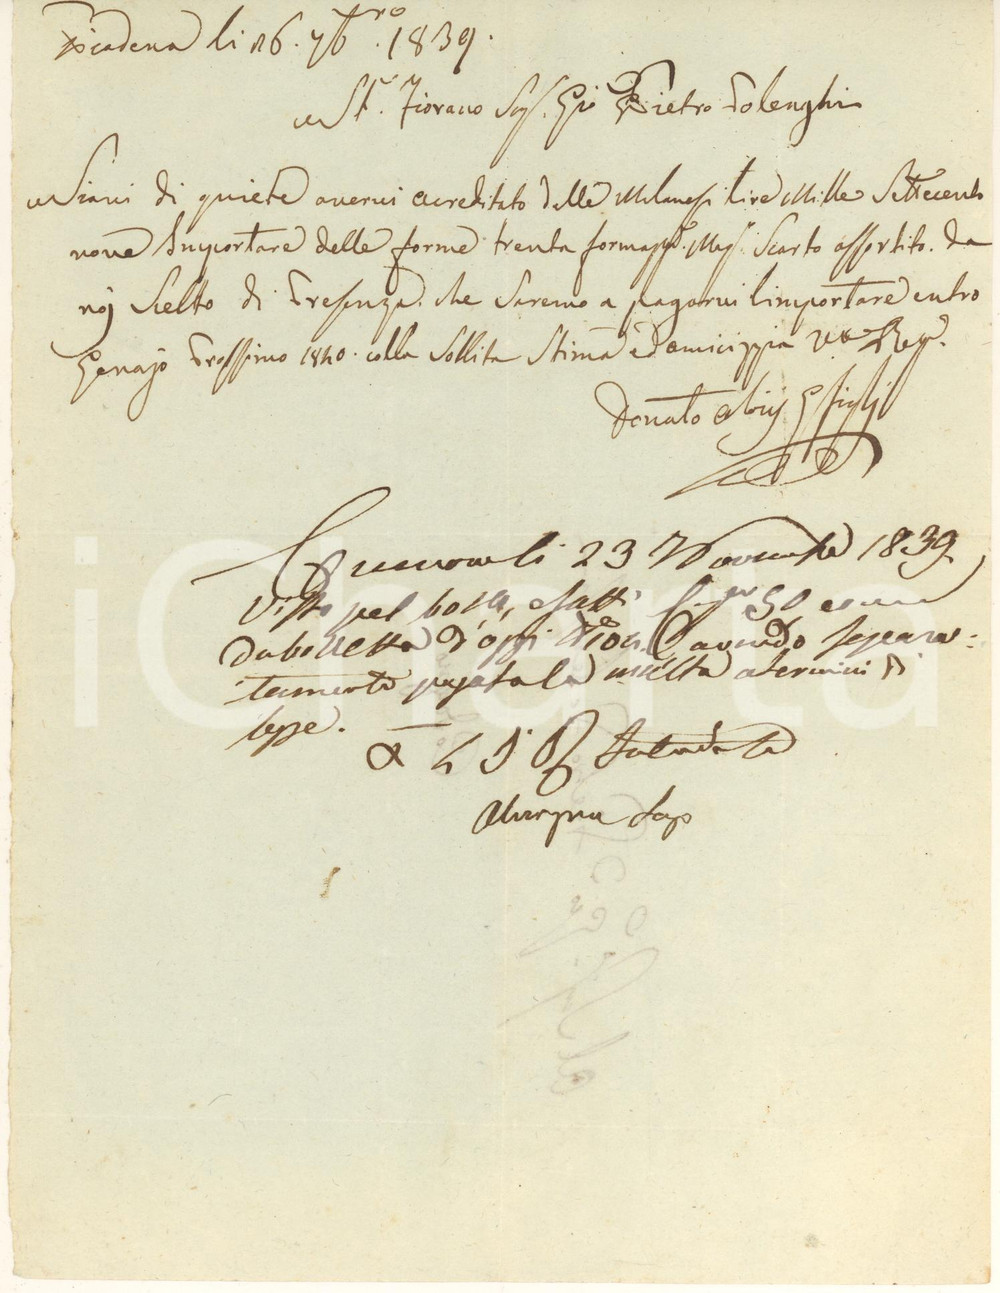 Piadena li 26. 7bro. 1839.
St. Fiorano Sig. Gio Pietro Polenghi
Siavi di quiete avervi acreditato delle Milanesi lire Mille Settecento
nove Importare delle forme trenta formagg. Mag. Scarto assortito. da
noj Scelto di Presenza. che Saremo a pagarvi l'importare entro
Genajo Prossimo 1840. colla Sollita Stima ed amicizzia
Donato Figlj
Cremona li 23 Novembre 1839
Visto pel bollo, esatti 50 come
da bolletta d'oggi avendo separa-
tamente pagata la multa a termini di
legge.
iCharta